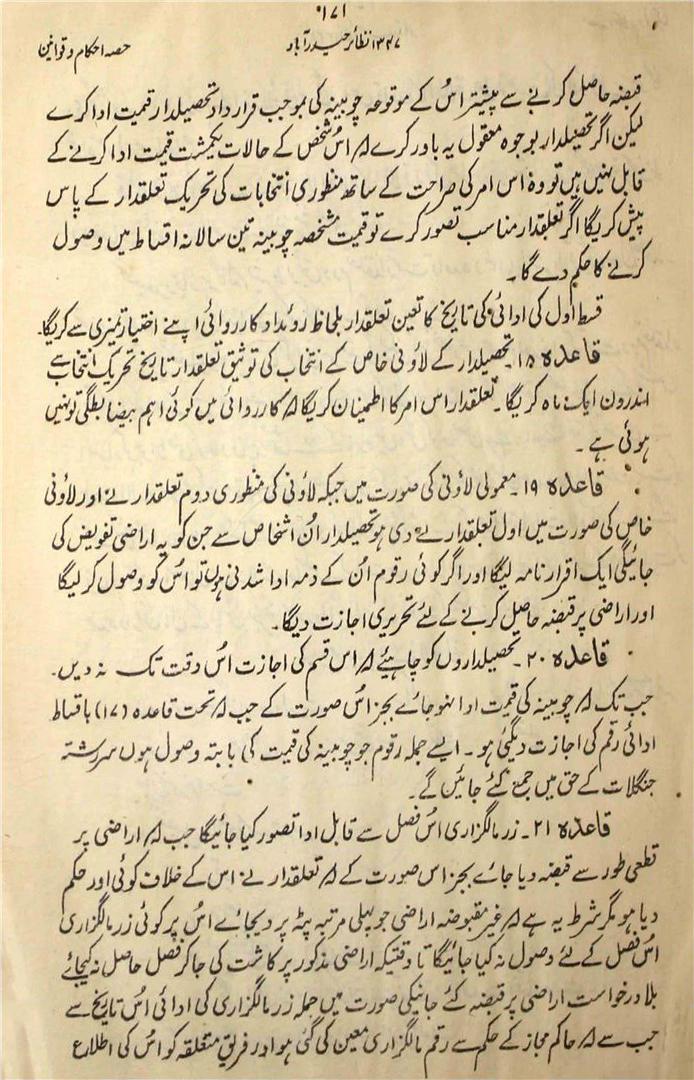 ۱۷۱
۱۳۴۷ نظائر حیدرآباد
حصہ احکام و قوانین
قبضہ حاصل کرنے سے پیشتر اُس کے موقوعہ چوبینہ کی بموجب قرارداد تحصیلدار قیمت ادا کرے
لیکن اگر تحصیلدار بوجوہ معقول یہ باور کرے کہ اس شخص کے حالات یکمشت قیمت ادا کرنے کے
قابل نہیں ہیں تو وہ اس امر کی صراحت کے ساتھ منظوری انتخابات کی تحریک تعلقدار کے پاس
پیش کریگا اگر تعلقدار مناسب تصور کرے تو قیمت مشخصہ چوبینہ تین سالانہ اقساط میں وصول
کرنے کا حکم دے گا۔
قسط اول کی ادائی کی تاریخ کا تعین تعلقدار بلحاظ روئداد کارروائی اپنے اختیار تمیزی سے کریگا۔
قاعدہ ۱۸۔ تحصیلدار کے لاؤنی خاص کے انتخاب کی توثیق تعلقدار تاریخ تحریک انتخاب سے
اندرون ایک ماہ کریگا۔ تعلقدار اس امر کا اطمینان کریگا کہ کارروائی میں کوئی اہم بیضابطگی تو نہیں
ہوئی ہے۔
قاعدہ ۱۹۔ معمولی لاؤنی کی صورت میں جبکہ لاؤنی کی منظوری دوم تعلقدار نے اور لاؤنی
خاص کی صورت میں اول تعلقدار نے دی ہو تحصیلدار اُن اشخاص سے جن کو یہ اراضی تفویض کی
جائیگی ایک اقرار نامہ لیگا اور اگر کوئی رقوم اُن کے ذمہ ادا شدنی ہوں تو اُس کو وصول کر لیگا
اور اراضی پر قبضہ حاصل کرنے کے لئے تحریری اجازت دیگا۔
قاعدہ ۲۰۔ تحصیلداروں کو چاہئے کہ اس قسم کی اجازت اُس وقت تک نہ دیں۔
جب تک کہ چوبینہ کی قیمت ادا نہو جائے بجز اُس صورت کے جب کہ تحت قاعدہ (۱۷) باقساط
ادائی رقم کی اجازت دیگئی ہو۔ ایسے جملہ رقوم جو چوبینہ کی قیمت کی بابتہ وصول ہوں سررشتہ
جنگلات کے حق میں جمع کئے جائیں گے۔
قاعدہ ۲۱۔ زر مالگزاری اُس فصل سے قابل ادا تصور کیا جائیگا جب کہ اراضی پر
قطعی طور سے قبضہ دیا جائے بجز اس صورت کے کہ تعلقدار نے اس کے خلاف کوئی اور حکم
دیا ہو مگر شرط یہ ہے کہ غیر مقبوضہ اراضی جو پہلی مرتبہ پٹہ پر دیجائے اُس پر کوئی زر مالگزاری
اُس فصل کے لئے وصول نہ کیا جائیگا تا وقتیکہ اراضی مذکور پر کاشت کی جا کر فصل حاصل نہ کیجائے
بلا درخواست اراضی پر قبضہ کئے جانیکی صورت میں جملہ زر مالگزاری کی ادائی اُس تاریخ سے
جب سے کہ حاکم مجاز کے حکم سے رقم مالگزاری معین کی گئی ہو اور فریق متعلقہ کو اُس کی اطلاع